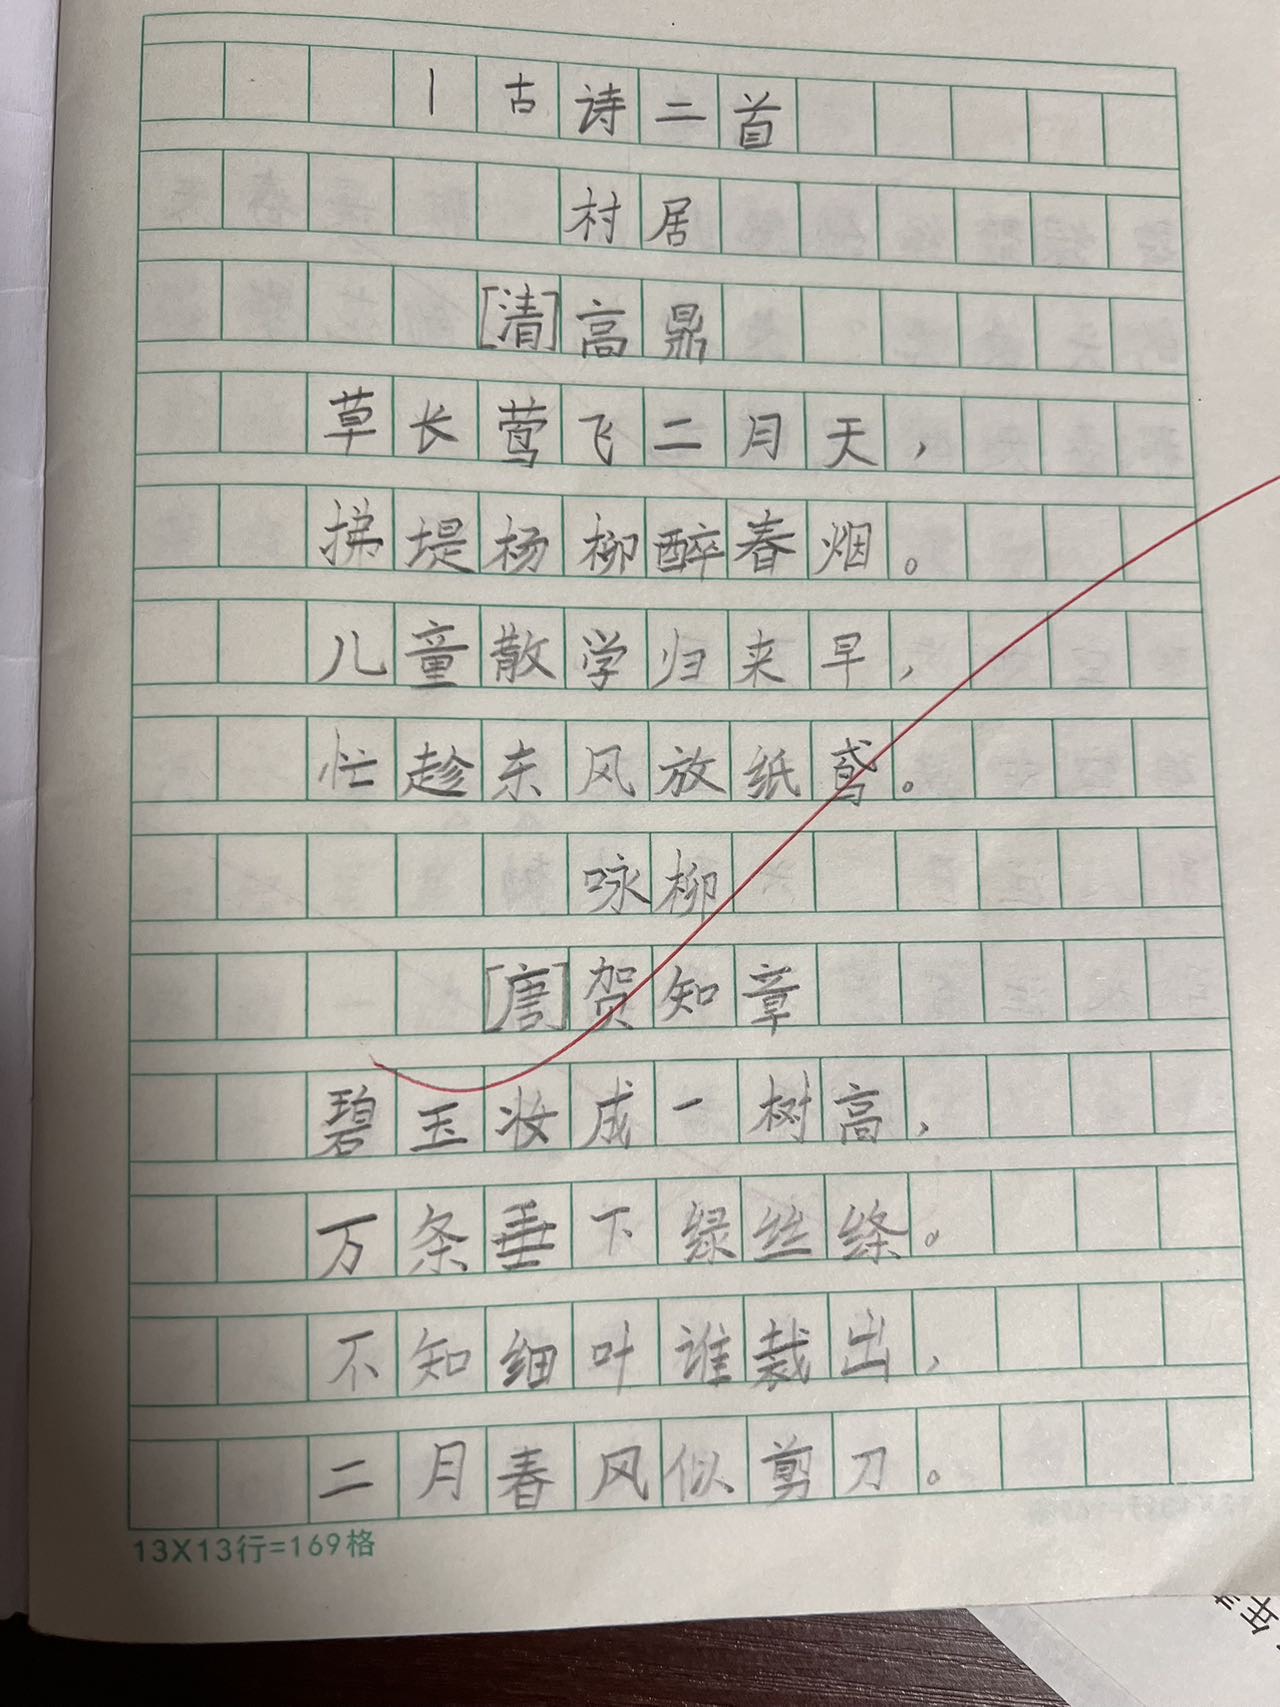 1古诗二首
村居
[清]高鼎
草长莺飞二月天，
拂堤杨柳醉春烟。
儿童散学归来早，
忙趁东风放纸鸢。
咏柳
[唐]贺知章
碧玉妆成一树高，
万条垂下绿丝绦。
不知细叶谁裁出，
二月春风似剪刀。
13X13行=169格